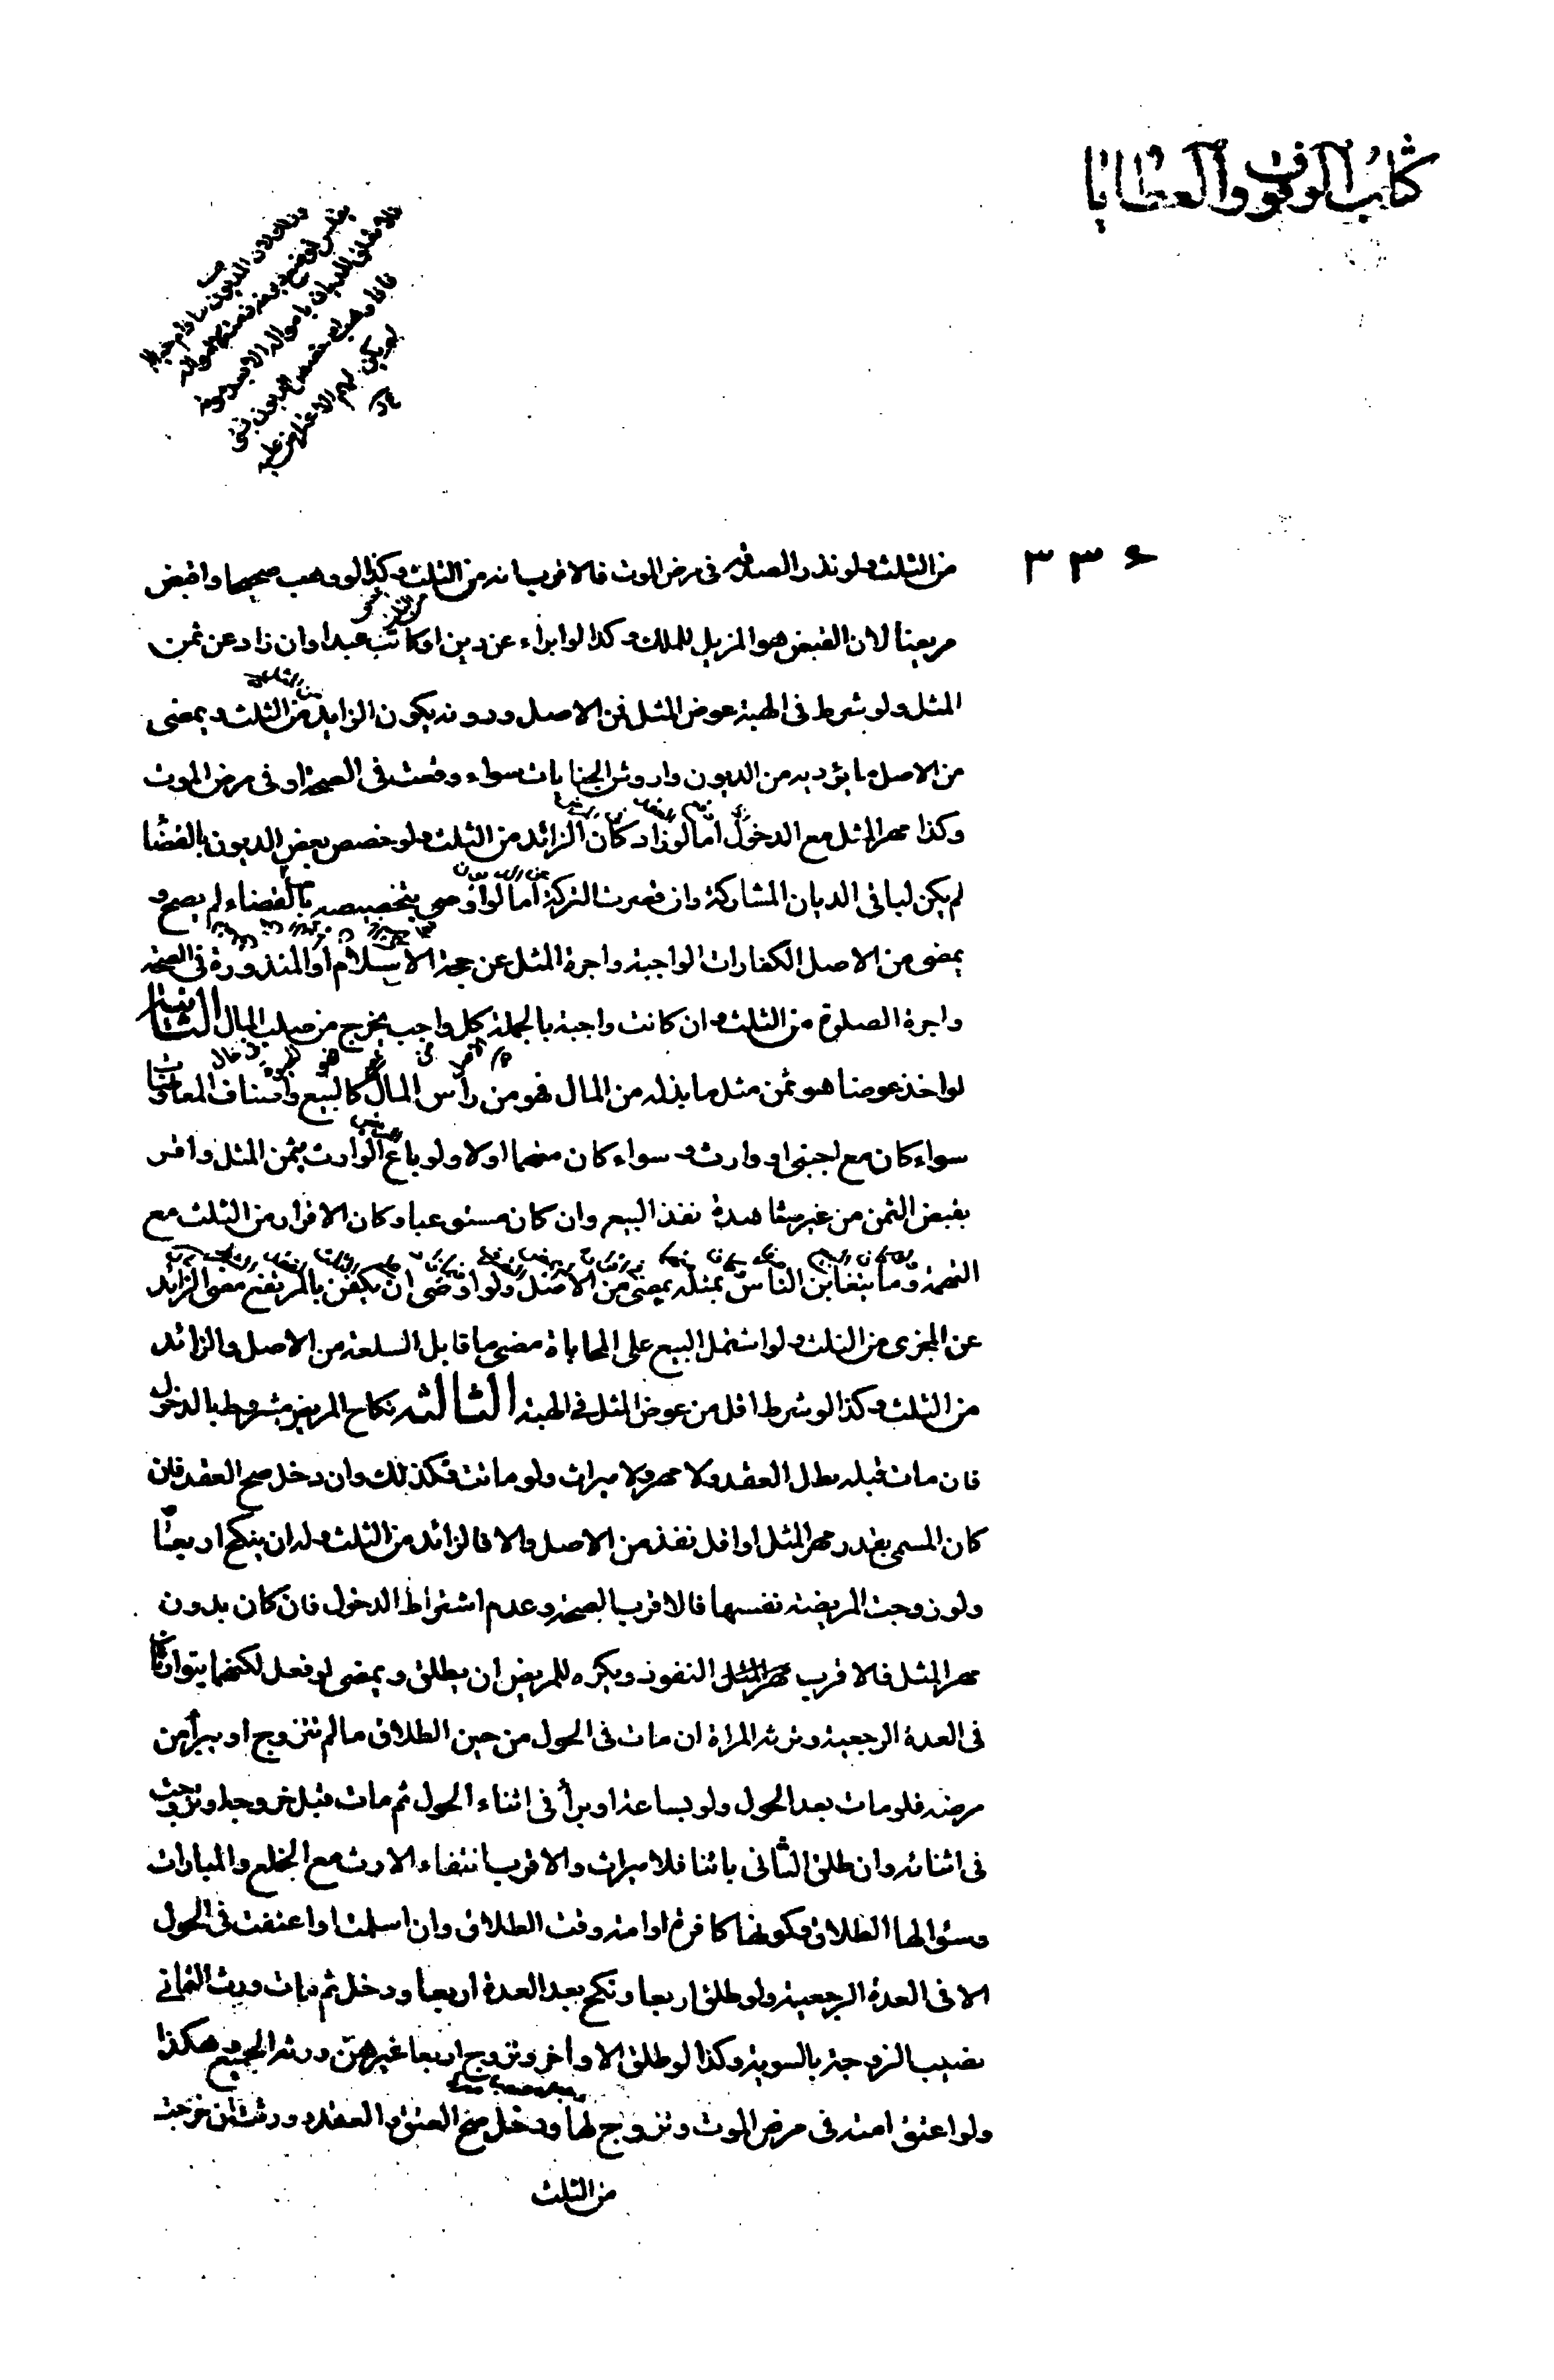 كتاب الوقوف والعطايا
٣٣٤
من الثلث ولو نذر الصدقه فى مرض الموت فالاقرب انه من الثلث وكذا لو وهب صحيحا واقبض
مريضا لان القبض هو المزيل للملك وكذا لو ابراء عن دين او كاتب عبدا وان زاد عن ثمن
المثل ولو شرط فى الهبة عوض المثل فمن الاصل ودونه يكون الزايد من الثلث ويمضى
من الاصل ما يؤديه من الديون واروش الجنايات سواء وقعت فى الصحة او فى مرض الموت
وكذا مهر المثل مع الدخول اما لو زاد كان الزائد من الثلث ولو خصص بعض الديون بالقضا
لم يكن لباقى الديان المشاركة وان قصرت التركة اما لو اوصى بتخصيصه بالقضاء لم يصح و
يمضى من الاصل الكفارات الواجبة واجرة المثل عن حجة الاسلام او المنذورة فى الصحة
واجرة الصلوة من الثلث وان كانت واجبة بالجملة كل واجب يخرج من صلب المال الثانية
لو اخذ عوضا هو ثمن مثل ما بذله من المال فهو من رأس المال كالبيع واصناف المعاوضات
سواء كان مع اجنبى او وارث وسواء كان متهما او لا ولو باع الوارث بثمن المثل واقر
بقبض الثمن من غير مشاهدة نفذ البيع وان كان مستوعبا وكان الاقرار من الثلث مع
التهمة وما يتغابن الناس بمثله يمضى من الاصل ولو اوصى ان يكفن بالمرتفع مضى الزائد
عن المجزى من الثلث ولو اشتمل البيع على المحاباة مضى ما قابل السلعة من الاصل والزائد
من الثلث وكذا لو شرط اقل من عوض المثل فى الهبة الثالثه نكاح المريض مشروط بالدخول
فان مات قبله بطل العقد ولا مهر ولا ميراث ولو ماتت فكذلك وان دخل صح العقد فان
كان المسمى بقدر مهر المثل او اقل نفذ من الاصل والا فالزائد من الثلث وله ان ينكح اربعا
ولو زوجت المريضة نفسها فالاقرب الصحة وعدم اشتراط الدخول فان كان بدون
مهر المثل فالاقرب مهر المثل النفوذ ويكره للمريض ان يطلق ويمضى لو فعل لكنهما يتوارثان
فى العدة الرجعية وترثه المراة ان مات فى الحول من حين الطلاق ما لم تتزوج او يبرأ من
مرضه فلو مات بعد الحول ولو بساعة او برأ فى اثناء الحول ثم مات قبل خروجه او تزوجت
فى اثنائه وان طلق الثانى بائنا فلا ميراث والاقرب انتفاء الارث مع الخلع والمبارات
وسئوالها الطلاق وكونها كافرة او امة وقت الطلاق وان اسلمت او اعتقت فى الحول
الا فى العدة الرجعية ولو طلق اربعا ونكح بعد العدة اربعا ودخل ثم مات ورث الثمانى
نصيب الزوجة بالسوية وكذا لو طلق الاواخر وتزوج اربعا غيرهن ورثه الجميع وهكذا
ولو اعتق امته فى مرض الموت وتزوج لها ودخل صح العتق والعقد وورثت ان خرجت
من الثلث